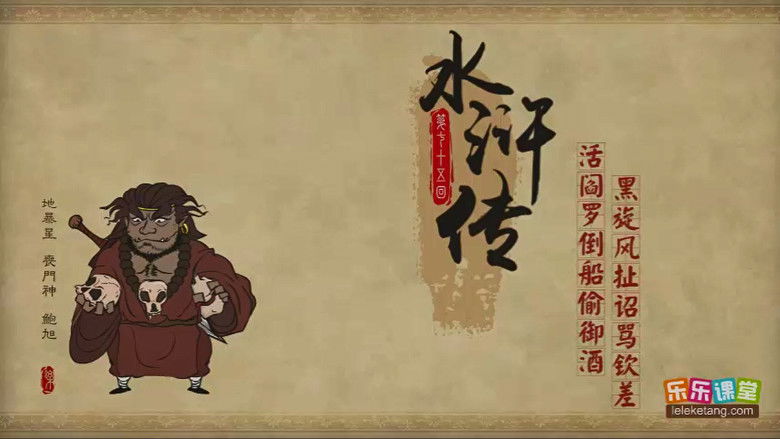 水浒传
第七十五回
活阎罗倒船偷御酒
黑旋风扯诏骂钦差
地暴星 喪門神 鲍旭
乐乐课堂
leleketang.com